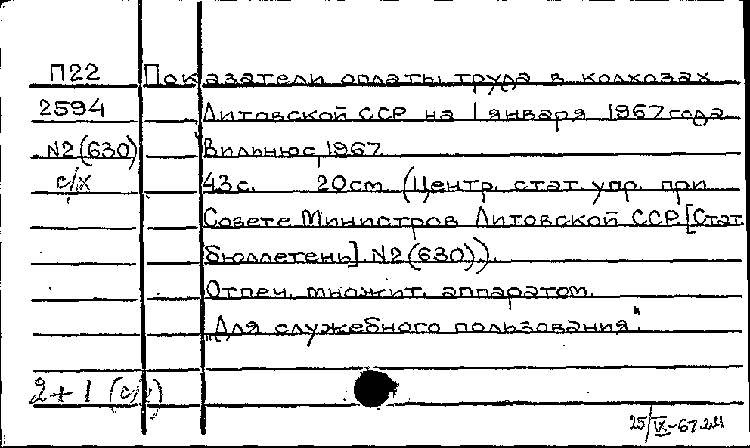 П22 Показатели оплаты труда в колхозах
2594 Литовской ССР на 1 января 1967 года
N2(630) Вильнюс, 1967.
с/х 43с. 20cm (Центр. стат. упр. при
Совете Министров Литовской ССР. [Стат.
бюллетень]. N2(630)).
Отпеч. множит. аппаратом.
„Для служебного пользования".
2+1 (с/х)
25/IX-67